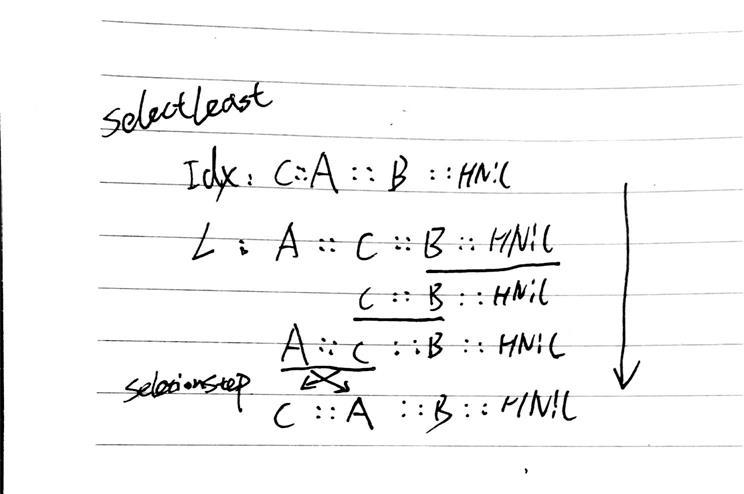 selectLeast
Idx: C::A :: B :: HNil
L : A :: C :: B :: HNil
C :: B :: HNil
A :: C :: B :: HNil
selecionstep
C :: A :: B :: HNil